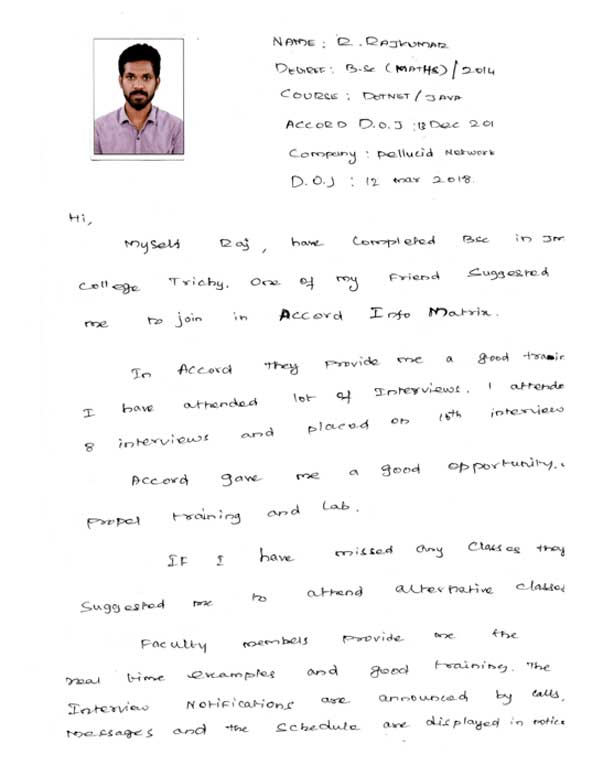 NAME : R. RAJKUMAR
DEGREE : B.Sc (MATHS) / 2014
COURSE : DOTNET / JAVA
ACCORD D.O.J : 13 Dec 201
Company : pellucid Network
D.O.J : 12 mar 2018.
Hi,
Myself Raj, have Completed Bsc in Jm
College Trichy. One of my Friend Suggested
me to join in Accord Info Matrix.
In Accord They provide me a good trainin
I have attended lot of Interviews. I attende
8 interviews and placed on 16th interview
Accord gave me a good opportunity.
proper training and Lab.
If I have missed any Classes they
Suggested me to attend alternative classes
Faculty members provide me the
real time examples and good training. The
Interview Notifications are announced by calls,
Messages and the Schedule are displayed in notice